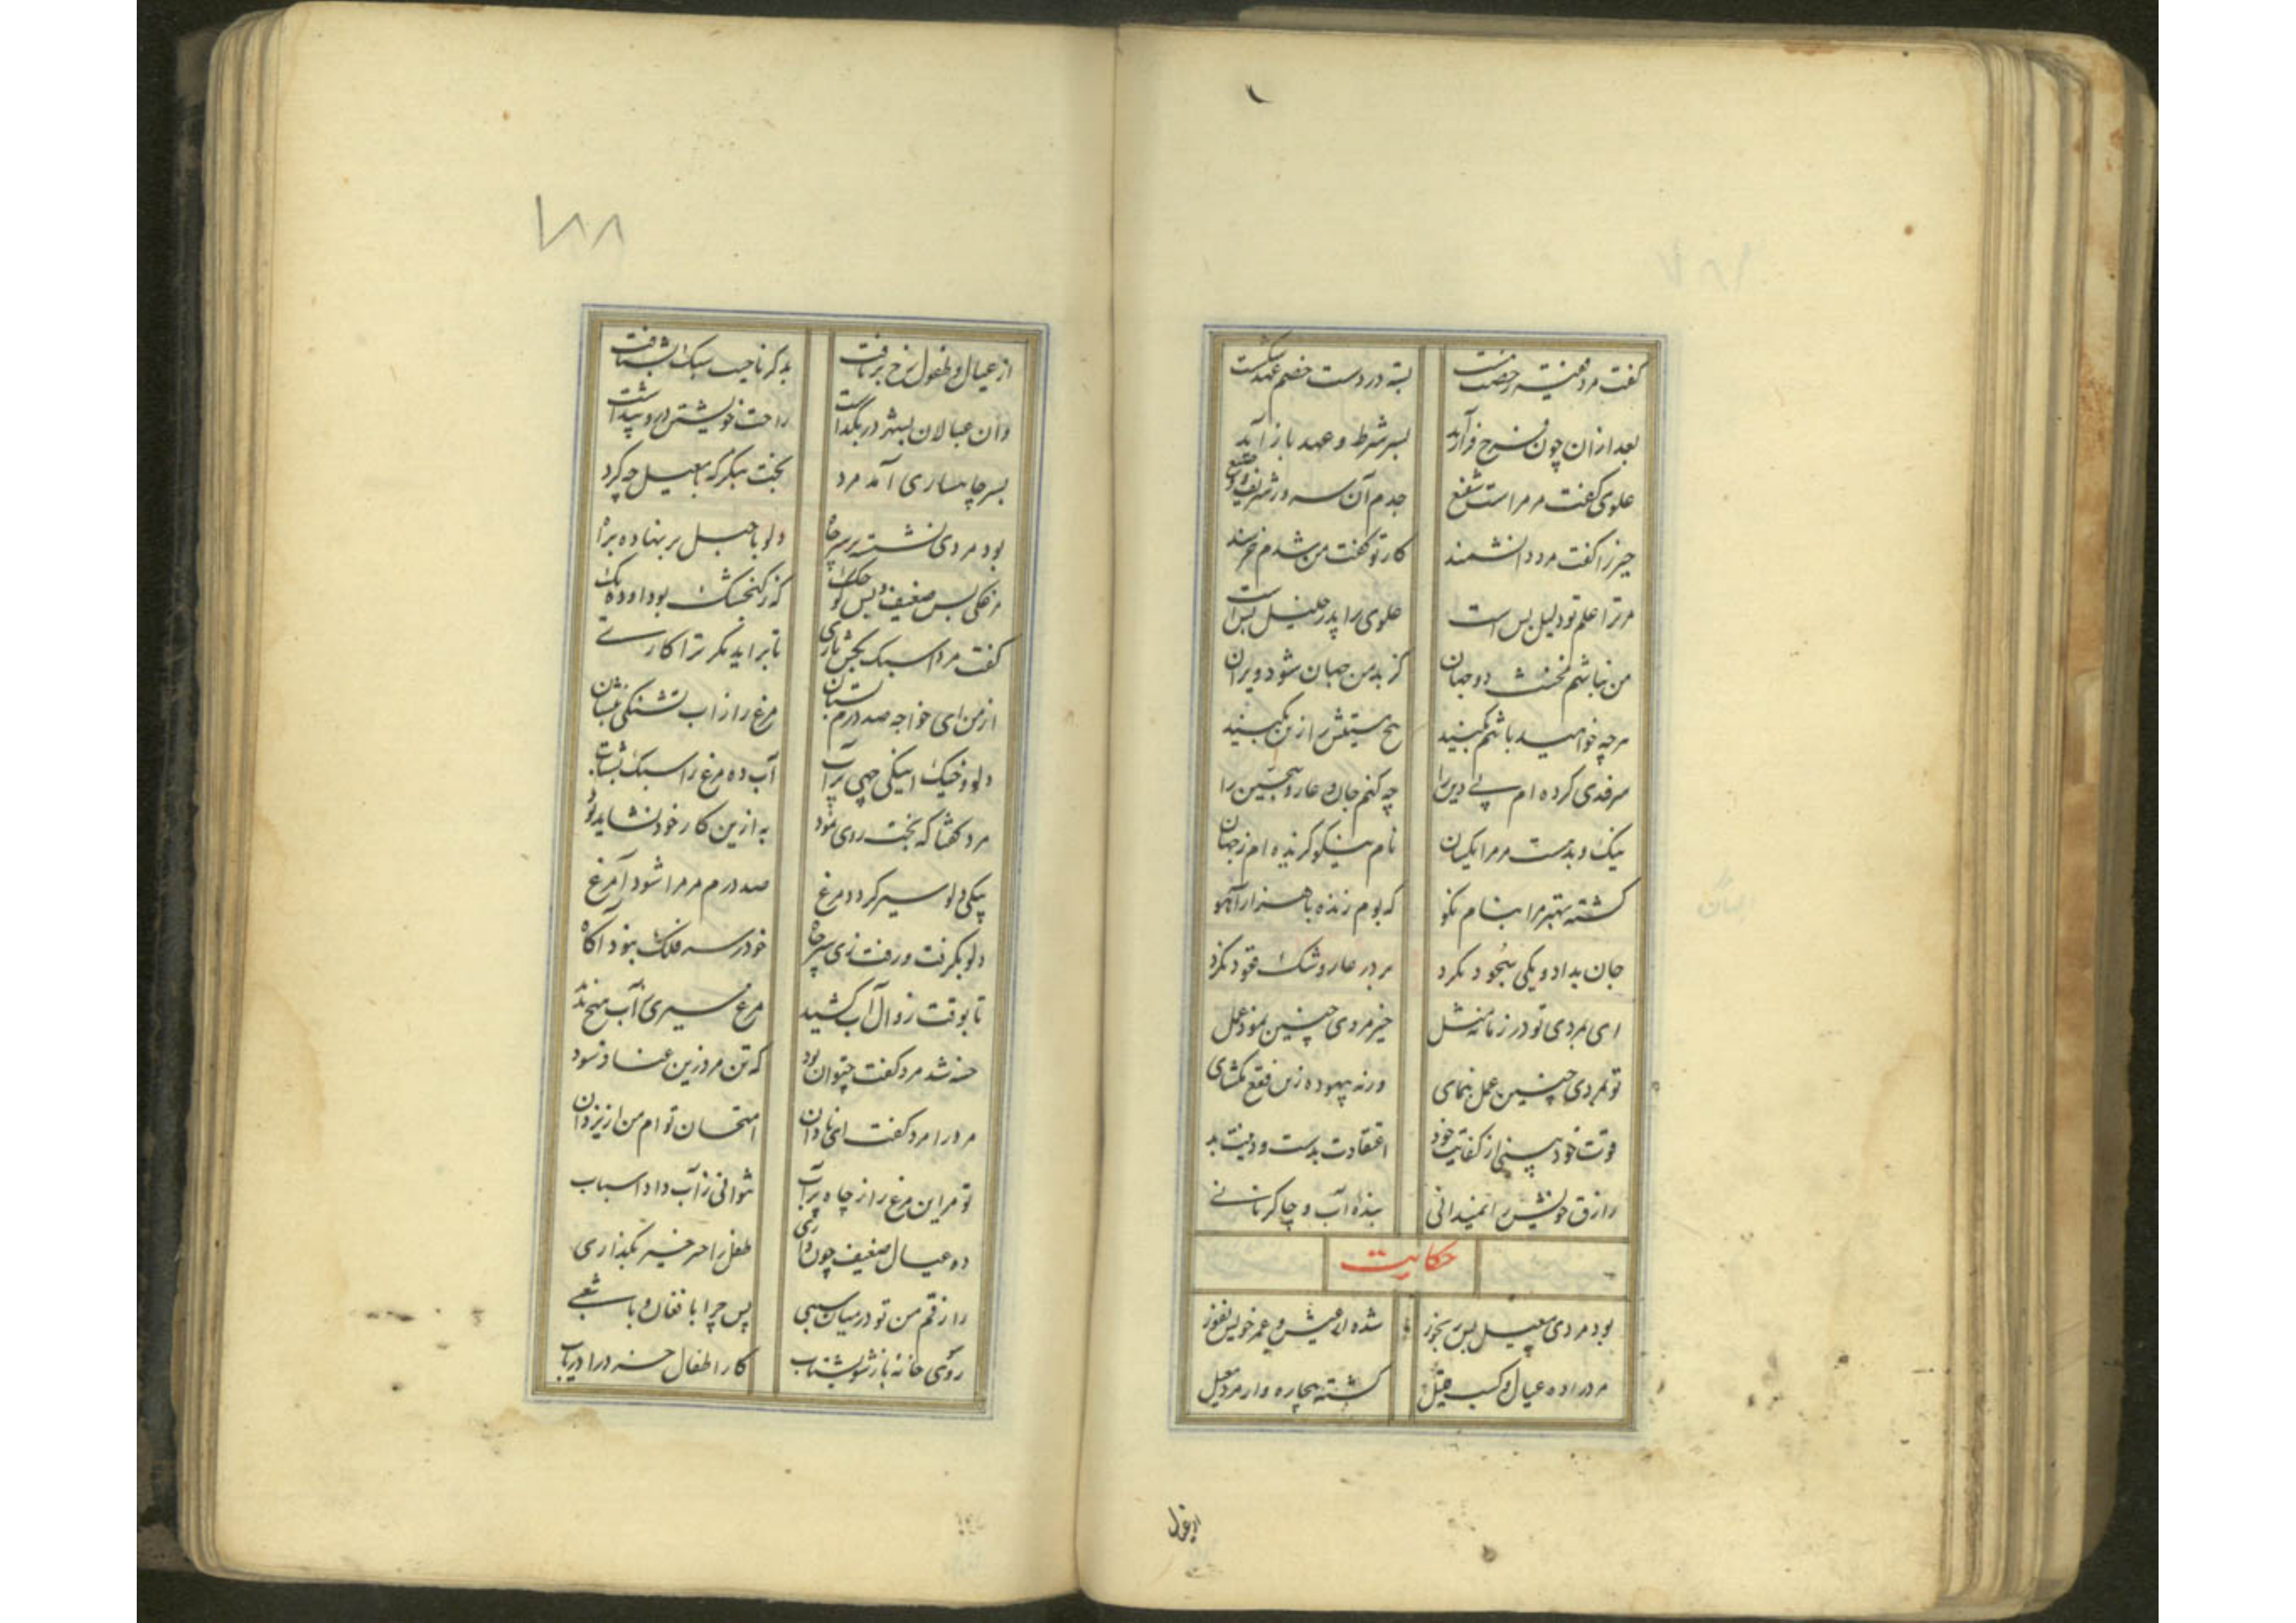 گفت مرد مخنث رخصت هست بسته در دست خصم عهد شکست
بعد ازان چون فرح فراز آید بسر شرط و عهد باز آید
علوی گفت مر مراست شفیع جدم آن سرور شریف و وضیع
حیز را گفت مرد دانشمند کار تو گفت من شدم خرسند
مر ترا علم تو دلیل بس است علوی را پدر خلیل بس است
من نباشم مخنث دو جهان کز بد من جهان شود ویران
هرچه خواهید باشم بکنید هیچ سیستش از من مکنید
سر فدی کرده ام پی دین را چه کنم جان و عار و تهجین را
نیک و بد هست مر مرا یکسان نام نیکو گزیده ام ز جهان
کشته بهتر مرا بنام نکو که بوم زنده با هزار آهو
جان بداد و یکی بنجود نکرد بر در عار و شک قنود نکرد
ای بمردی تو در زمانه مثل حیز مردی چنین نمود عمل
تو بمردی چنین عمل بنمای ورنه بیهوده زین فقع مگشای
قوت خود بینی از کفایت خود اعتقادت بدست و دینت بد
رازق خویش را نمیدانی بنده آب و چاکر نانی
حکایت
بود مردی معیل بس رنجور شده از عیش و عمر خویش نفور
مرد را ده عیال و کسب قلیل گشته بیچاره وار مرد معیل
از عیال و طفول رخ برتافت بدگر ناحیت سبک بشتافت
وان عیالان بشهر در بگذاشت راحت خویشتن در و پنداشت
بسر چاهساری آمد مرد بخت بنگر که با معیل چه کرد
بود مردی نشسته بر سر چاه دلو با حبل بر نهاده براه
مرغکی بس ضعیف و بس کوچک که ز گنجشک بود او ده یک
گفت مردا سبک بخش یاری تا براید مگر ترا کاری
از من ای خواجه صد درم بستان مرغ را زاب تشنگی بنشان
دلو و خیک اینکی چهی پر آب آب ده مرغ را سبک بشتاب
مرد گفتا که بخت روی نمود به ازین کار خود نشاید بود
بیکی دلو سیر گردد مرغ صد درم مر مرا شود آمرغ
دلو بگرفت و رفت زی سر چاه خود ز سر فلک نبود آگاه
تا بوقت زوال آب کشید مرغ سیری ز آب می‌نخرید
خسته شد مرد گفت چتوان بود که تن مرد زین عنا فرسود
مرد را مرد گفت ای نادان امتحان تو ام من از یزدان
تو مر این مرغ را ز چاه پر آب نتوانی ز آب داد اسباب
ده عیال ضعیف چون داری طفل را خیر خیر بگذاری
رازقم من تو در میان سببی پس چرا با فغان و با شغبی
رو سوی خانه باز شو بشتاب کار اطفال خرد را دریاب
از عیال
۱۸۸